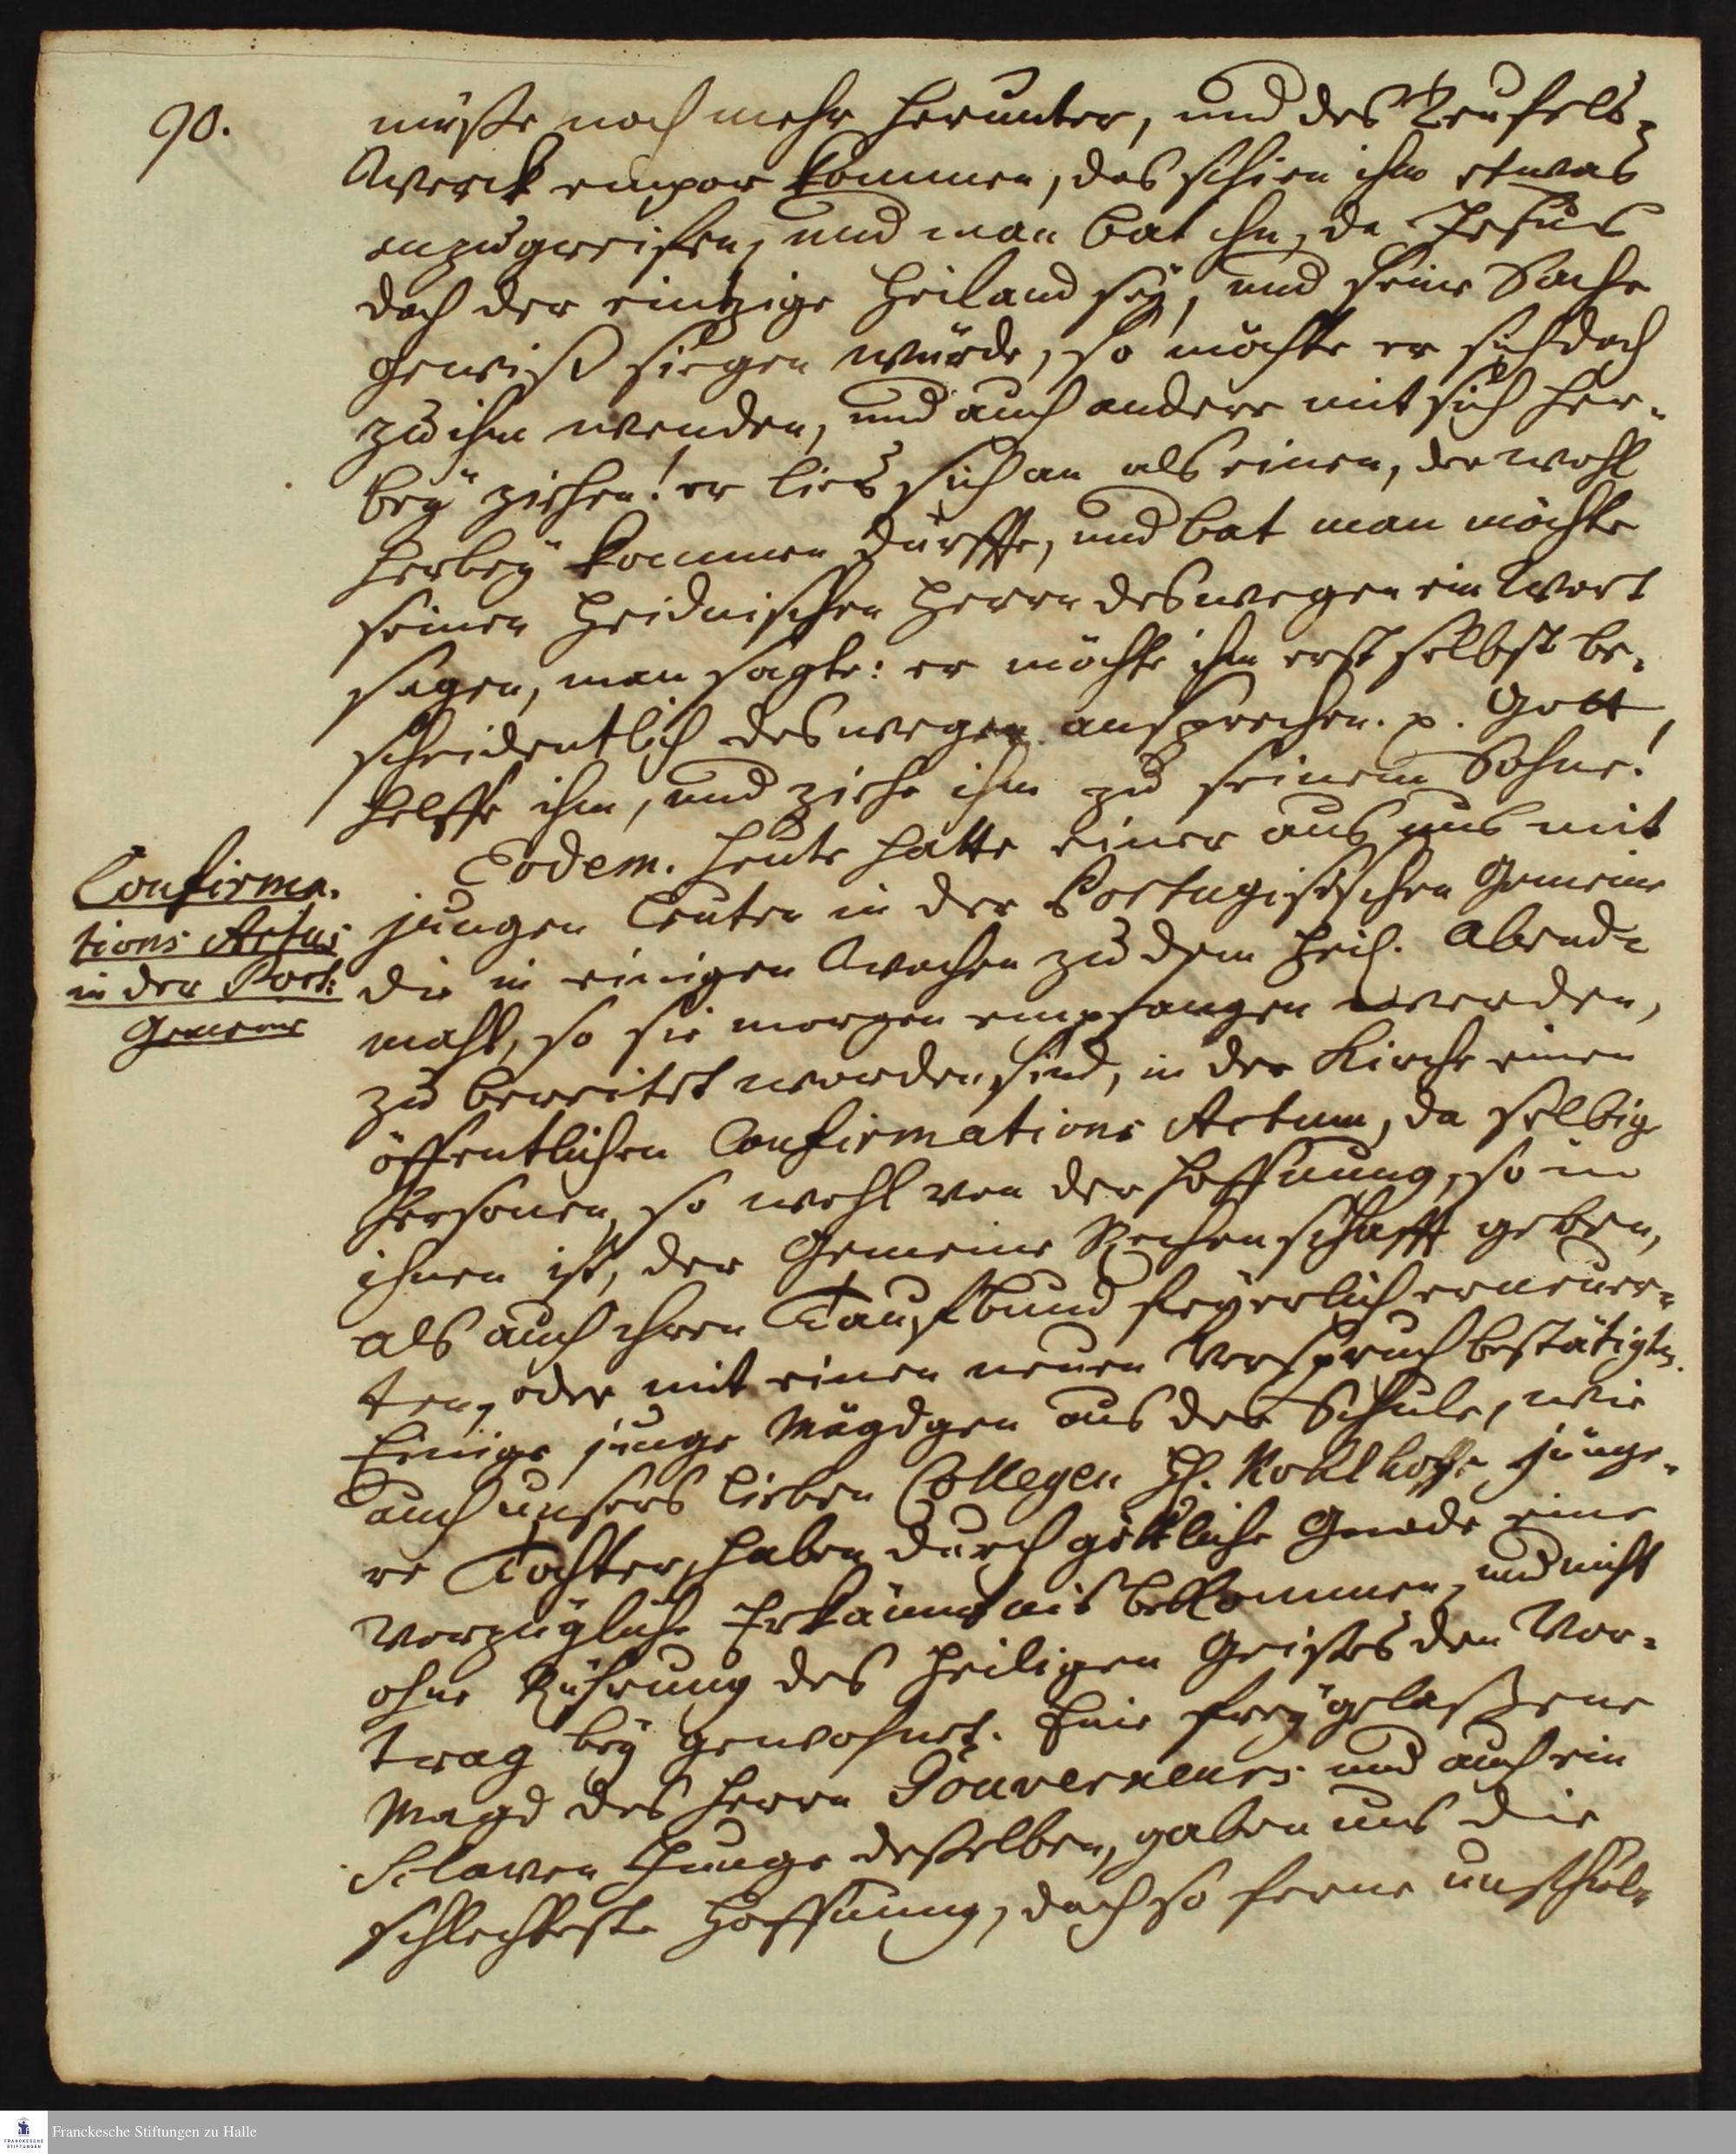 90.
müsse noch mehr herunter, und des Teufels-
Werck empor kommen, das schien ihn etwas
anzugreifen, und man bat ihn, da Jesus
doch der eintzige Heiland sey, und seine Sache
gewiß siegen würde, so möchte er sich doch
zu ihm wenden, und auch andere mit sich her-
bey ziehen! er lies sich an als einen, der wohl
herbey kommen dürffte, und bat man möchte
seinen Heidnischen Herrn deswegen ein Wort
sagen, man sagte: er möchte ihn erst selbst be-
scheidentlich deswegen ansprechen. p. Gott
helffe ihm, und ziehe ihn zu seinem Sohne!
Confirma-
tions Actus
in der Port:
Gemeine
Eodem. Heute hatte einer aus uns mit
jungen Leuten in der Portugisischen Gemeine
die in einigen Wochen zu dem Heil. Abend-
mahl, so sie morgen empfangen werden,
zu bereitet worden sind, in der Kirche einen
öffentlichen Confirmations Actum, da selbige
Personen, so wohl von der Hoffnung, so in
ihnen ist, der Gemeine Rechenschafft geben,
als auch ihren Taufbund feyerlich erneuer-
ten, oder mit einen neuen Verspruch bestätigten.
Einige junge Mägdgen aus der Schule, wie
auch unsers lieben Collegen H. Kohlhoffs jünge-
re Tochter, haben durch göttliche Gnade eine
vorzügliche Erkäntnis bekommen, und nicht
ohne Rührung des Heiligen Geistes den Vor-
trag bey gewohnet. Eine freygelassene
Magd des Herrn Gouverneurs und auch ein
Sclaven Junge desselben, gaben uns die
schlechteste Hoffnung, doch so ferne unschul-
Franckesche Stiftungen zu Halle